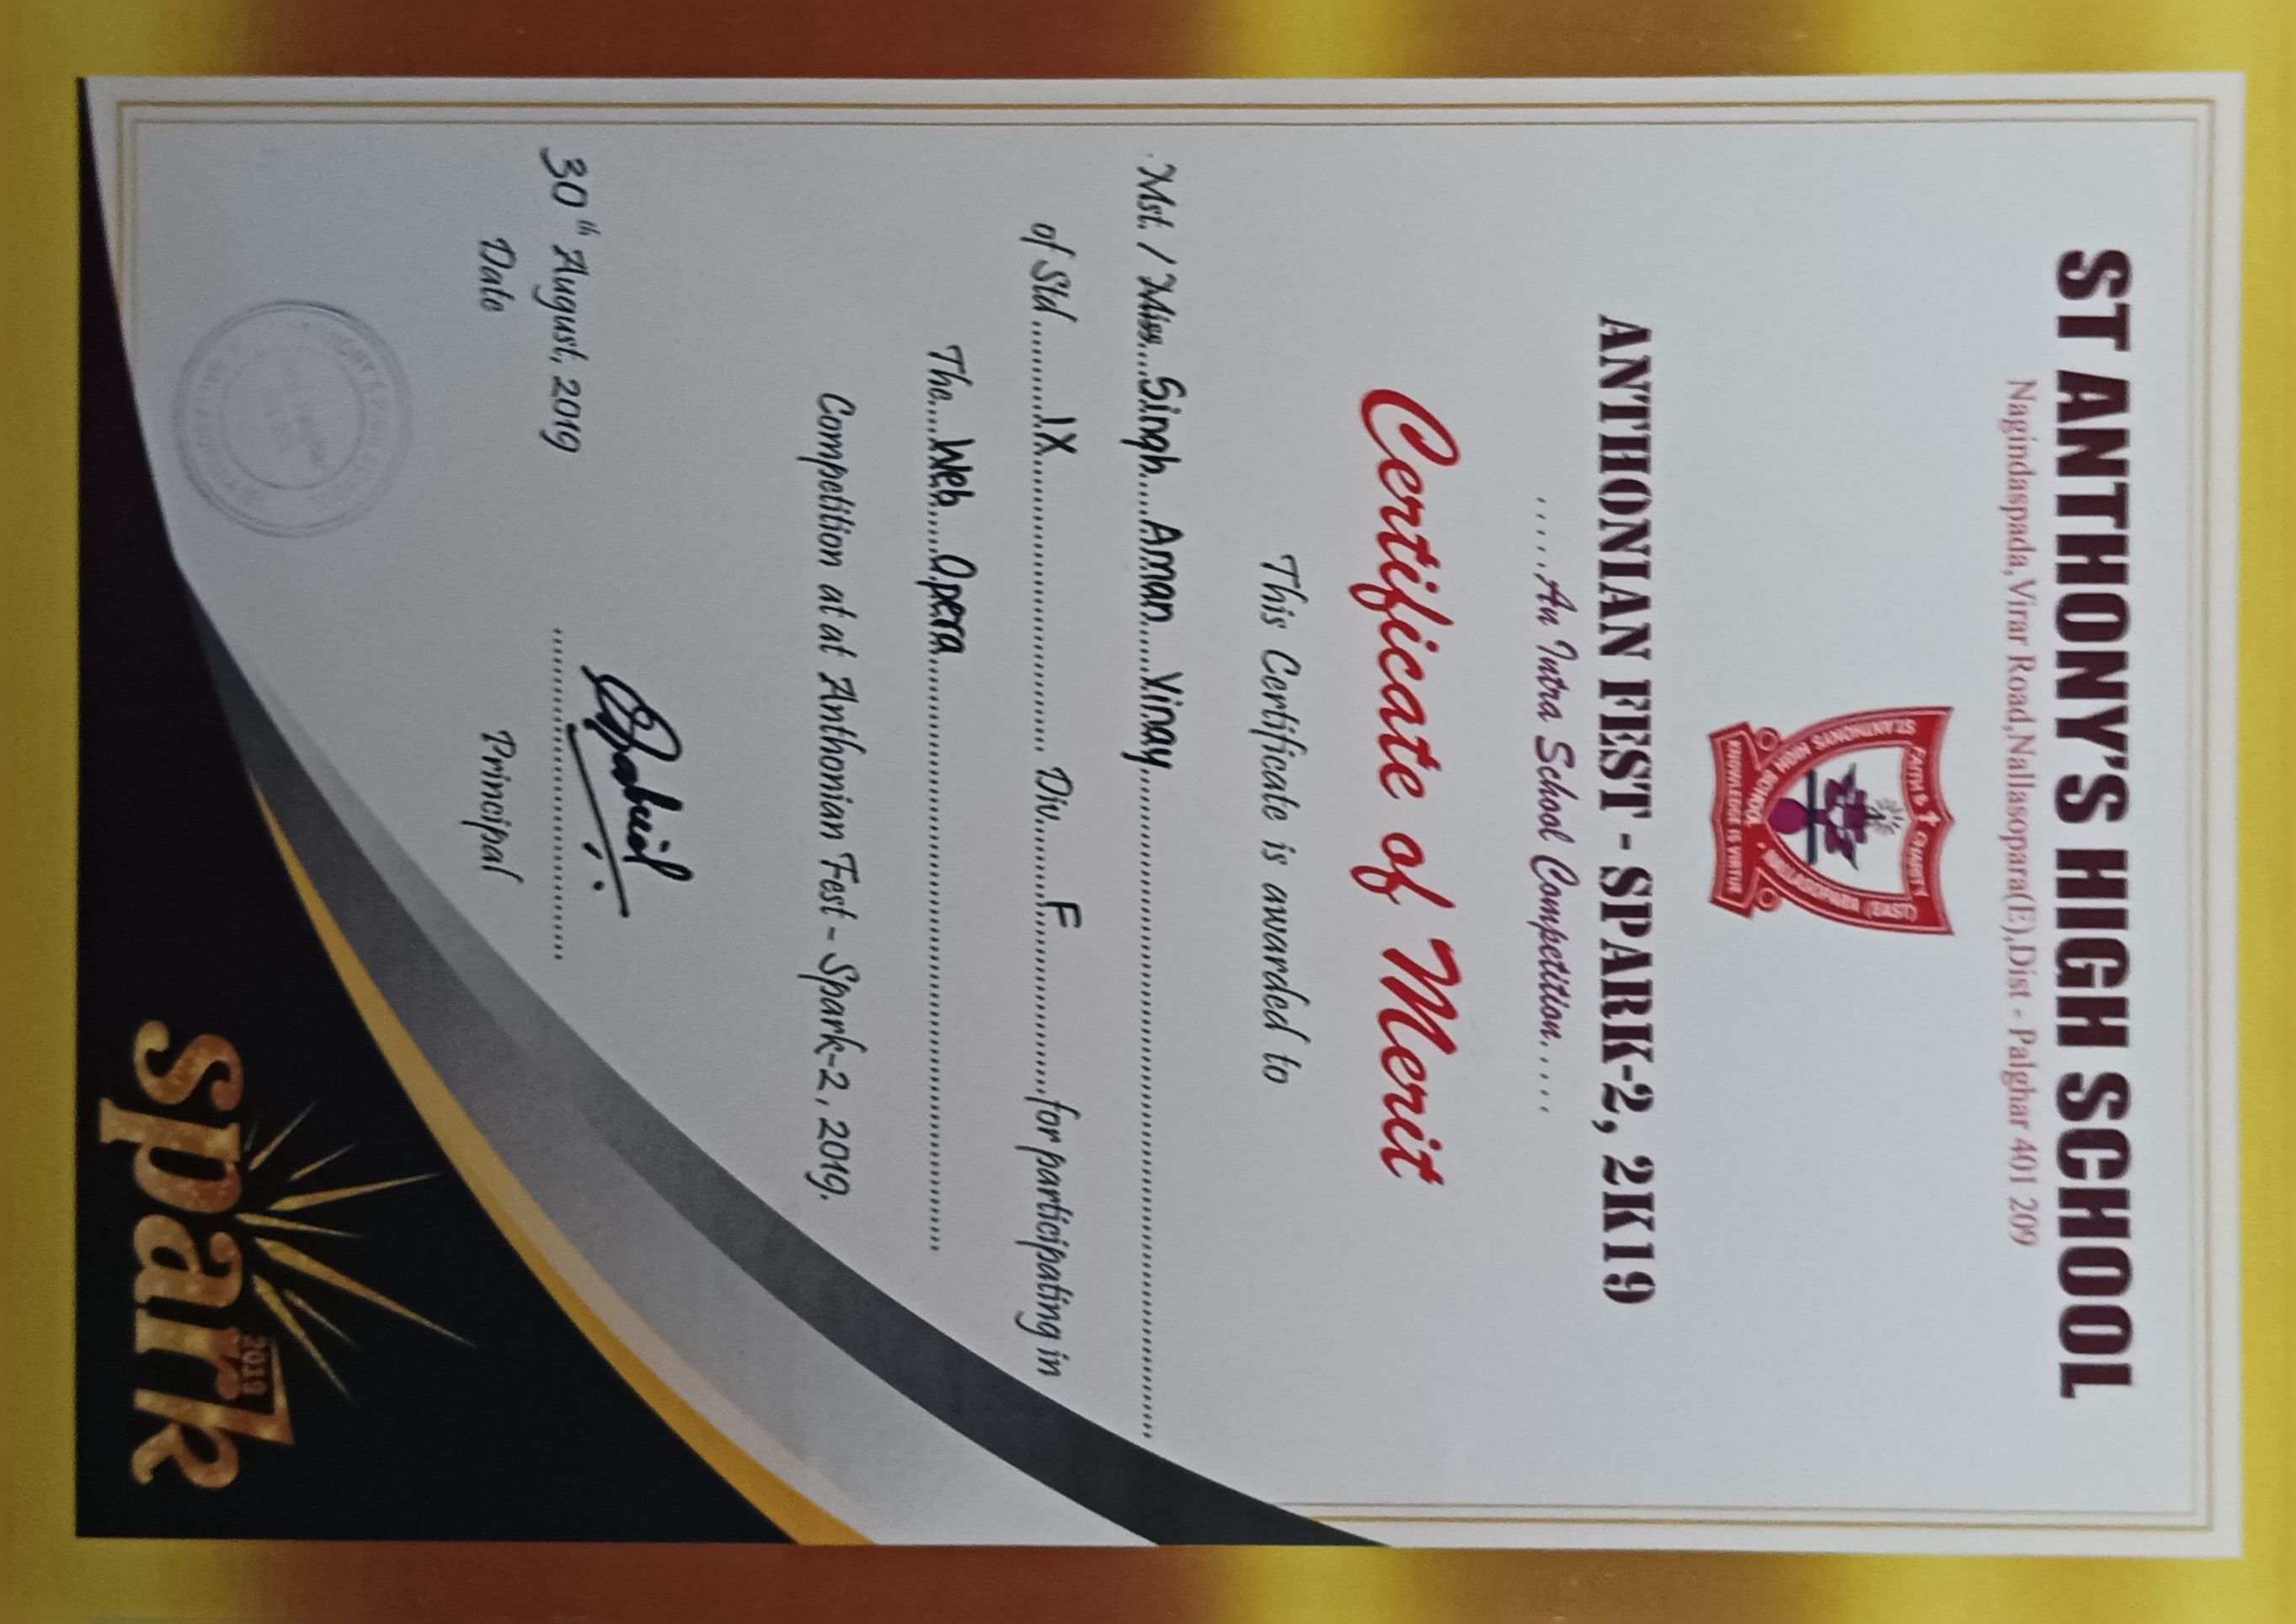 ST ANTHONY'S HIGH SCHOOL
Nagindaspada,Virar Road,Nallasopara(E),Dist - Palghar 401 209
FAITH & CHARITY
ST.ANTHONYS HIGH SCHOOL NALLASOPARA (EAST)
KNOWLEDGE IS VIRTUE
ANTHONIAN FEST - SPARK-2, 2K19
.....An Intra School Competition.....
Certificate of Merit
This Certificate is awarded to
Mst. / Miss...Singh....Aman....Vinay
of Std.........IX........ Div.......F........for participating in
The....Web....Opera
Competition at at Anthonian Fest - Spark-2, 2019.
30th August, 2019
Date
Principal
spark
2019